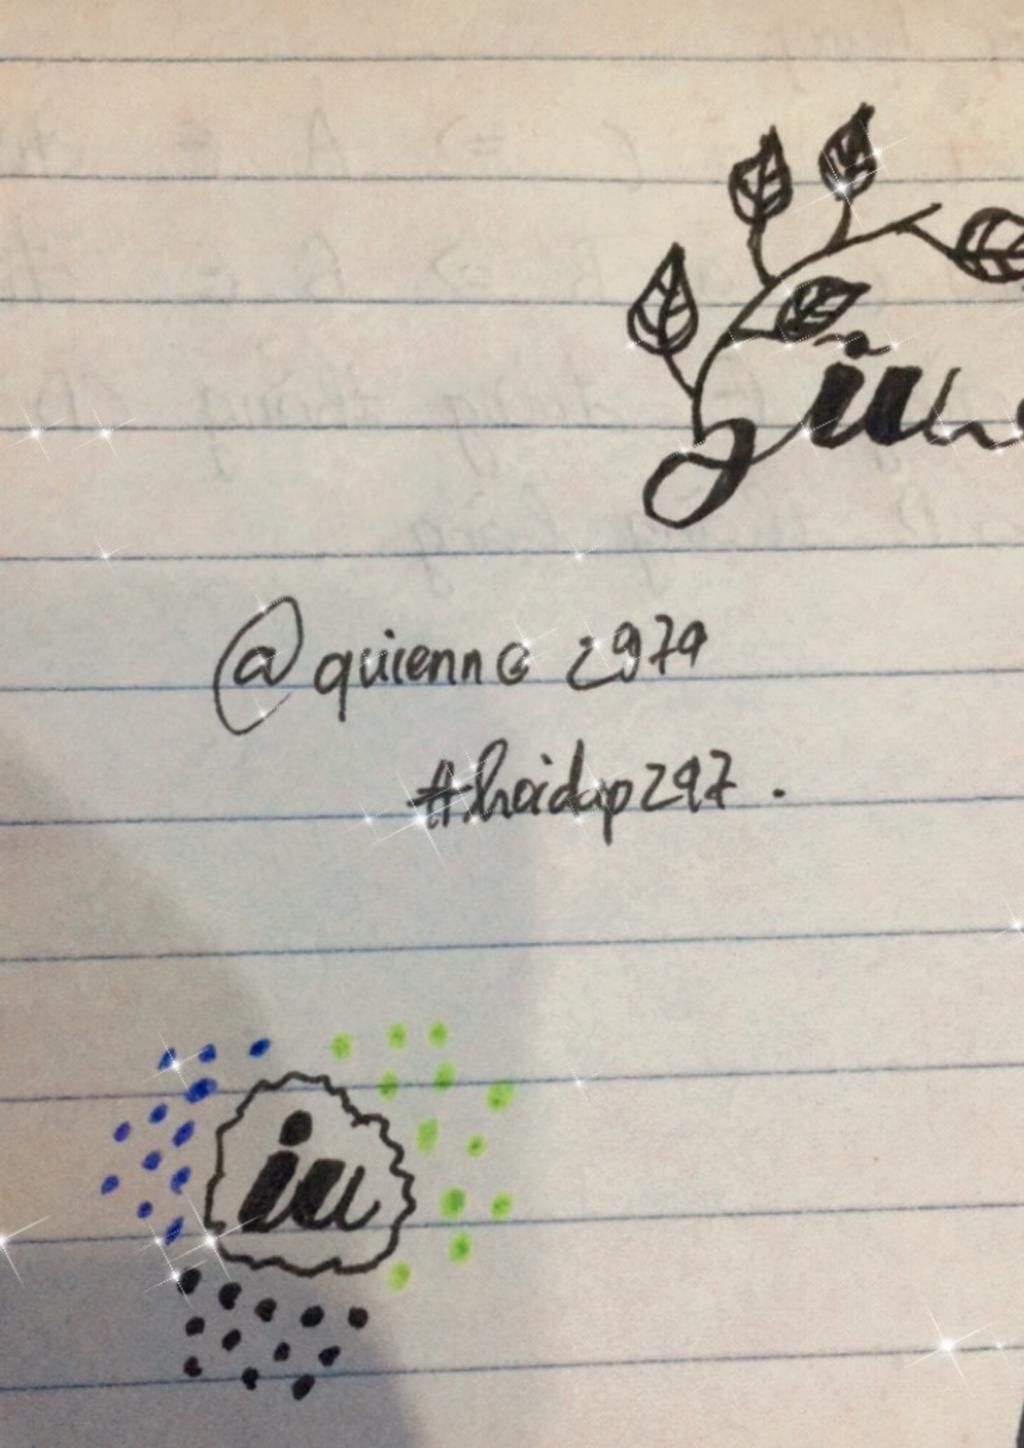 iu
@quienne 2979
#hoidap297.
iu